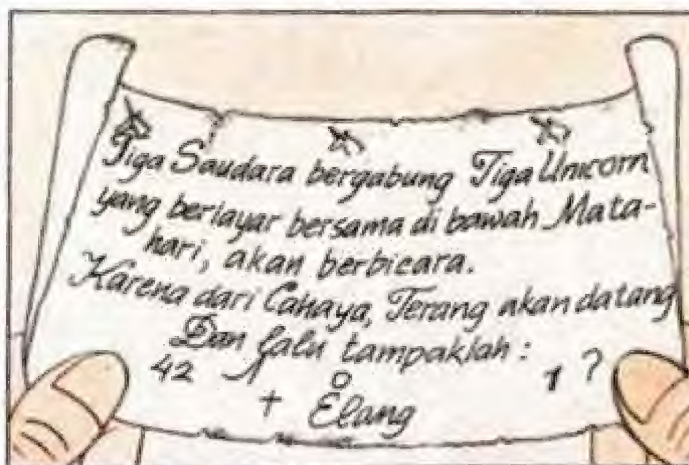 Tiga Saudara bergabung Tiga Unicorn
yang berlayar bersama di bawah Mata-
hari, akan berbicara.
Karena dari Cahaya, Terang akan datang
Dan lalu tampaklah :
42 1 0 1 ?
+ Elang